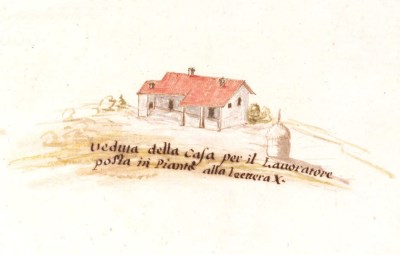 Veduta della Casa per il Lavoratore
posta in Pianta alla Lettera X.